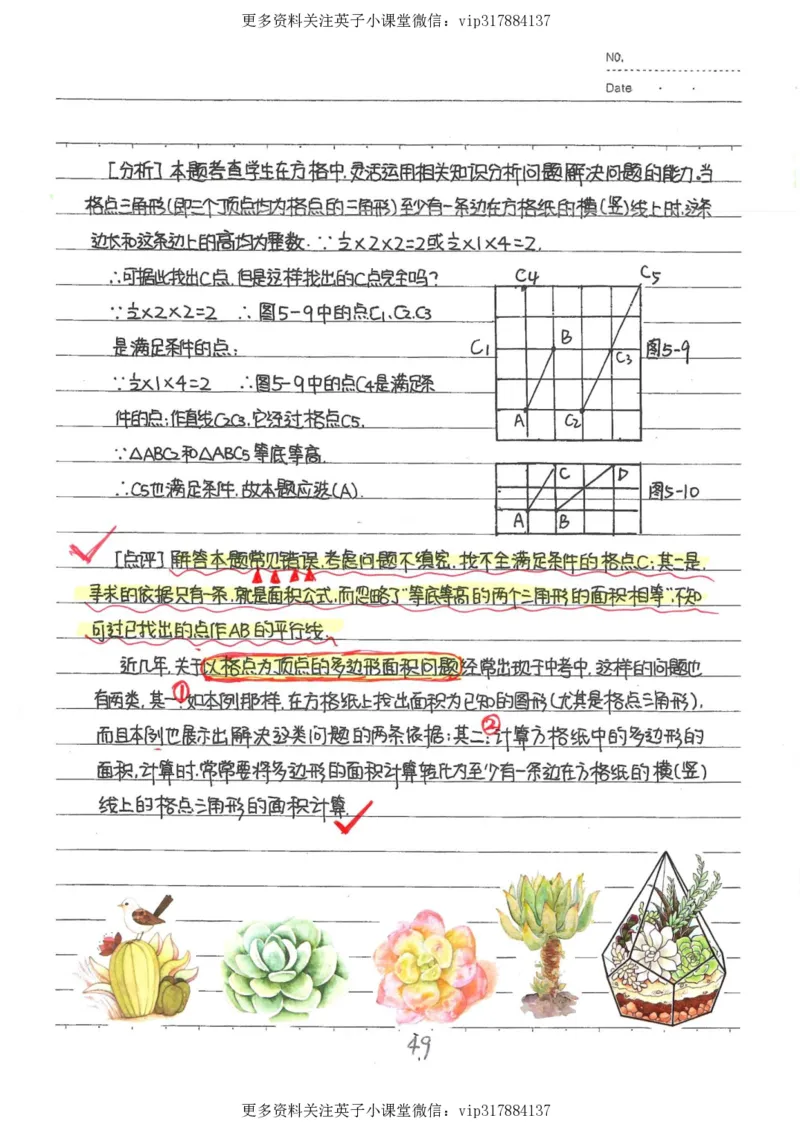 更多资料关注英子小课堂微信：vip317884137
NO.
Date
[分析] 本题考查学生在方格中，灵活运用相关知识分析问题解决问题的能力。当
格点三角形(即三个顶点均为格点的三角形)至少有一条边在方格纸的横(竖)线上时，这条
边长和这条边上的高均为整数. ∵½×2×2=2或½×1×4=2.
∴可据此找出C点，但是这样找出的C点完全吗？
∵½×2×2=2 ∴图5-9中的点C1、C2、C3
是满足条件的点；
∵½×1×4=2 ∴图5-9中的点C4是满足条
件的点；作直线C2C3，它经过格点C5.
∵△ABC2和△ABC5等底等高.
∴C5也满足条件，故本题应选(A).
C4
C5
B
C1
C3
图5-9
A
C2
C
D
图5-10
A
B
[点评] 解答本题常见错误，考虑问题不缜密，找不全满足条件的格点C；其二是，
寻求的依据只有一条，就是面积公式，而忽略了"等底等高的两个三角形的面积相等"，不知
可过已找出的点作AB的平行线.
近几年，关于以格点为顶点的多边形面积问题经常出现于中考中，这样的问题也
有两类，其一①：如本例那样，在方格纸上找出面积为已知的图形(尤其是格点三角形)，
而且本例也展示出解决这类问题的两条依据；其二②：计算方格纸中的多边形的
面积，计算时，常常要将多边形的面积计算转化为至少有一条边在方格纸的横(竖)
线上的格点三角形的面积计算.
49
更多资料关注英子小课堂微信：vip317884137